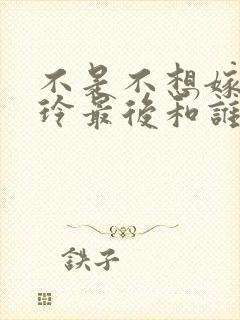 不是不想嫁
玲最後和誰
鉄子